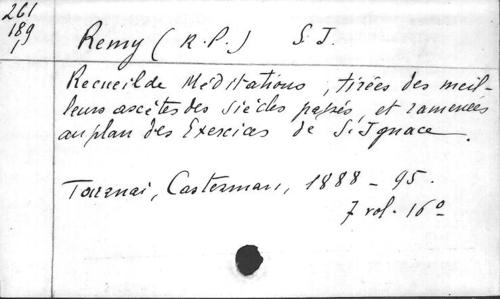 261
189
1
Remy (R.P.) S.J.
Recueil de Méditations, tirées des meil-
leurs ascètes des siècles passés, et ramenées
au plan des Exercices de S. Ignace.
Tournai, Casterman, 1888-95.
7 vol. 16°